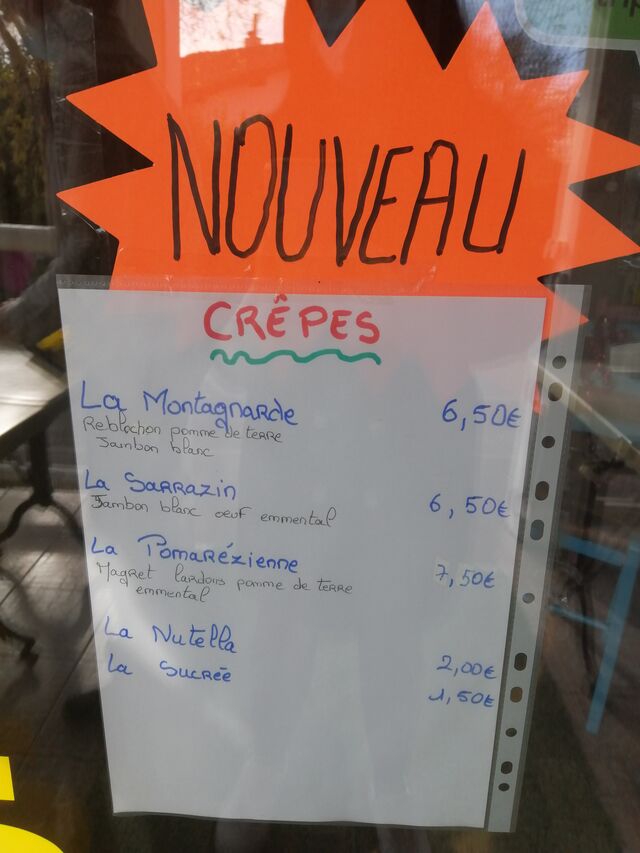 NOUVEAU
CRÊPES
La Montagnarde 6,50€
Reblochon pomme de terre
Jambon blanc
La Sarrazin 6,50€
Jambon blanc oeuf emmental
La Pomarézienne 7,50€
Magret lardons pomme de terre
emmental
La Nutella 2,00€
La Sucrée 1,50€